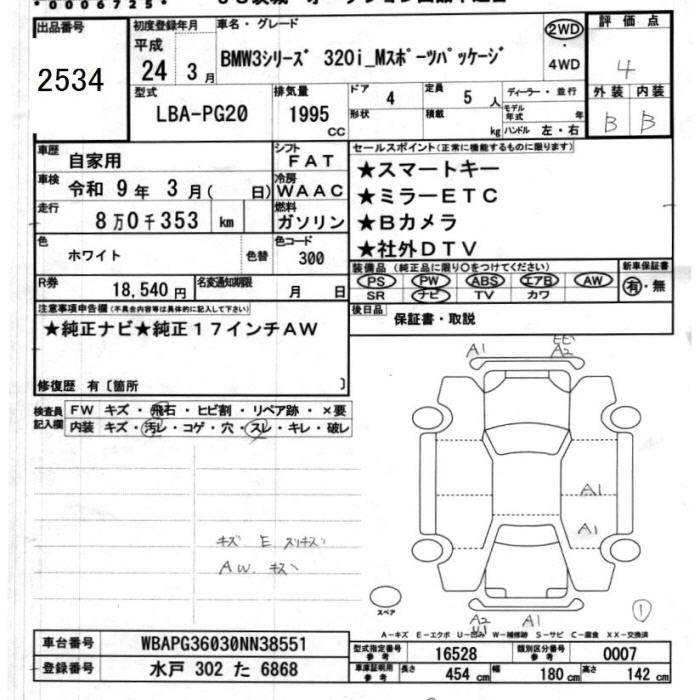 *0006725*
出品番号
2534
初度登録年月
平成
24 3月
車名・グレード
BMW3シリーズ 320i_Mスポーツパッケージ
2WD
・
4WD
評価点
4
外装 内装
B B
型式
LBA-PG20
排気量
1995
cc
ドア
4
形状
定員
5 人
積載
kg
ディーラー・並行
モデル年式 年
ハンドル 左・右
車歴
自家用
シフト
FAT
車検
令和 9年 3月( 日)
冷房
WAAC
走行
8万0千353 km
燃料
ガソリン
色
ホワイト
色替
色コード
300
R券
18,540円
名変通知期限
月 日
セールスポイント(正常に機能するものに限ります)
★スマートキー
★ミラーETC
★Bカメラ
★社外DTV
装備品(純正品に限り○をつけてください)
PS PW ABS エアB AW
SR ナビ TV カワ
新車保証書
有・無
後日品
保証書・取説
注意事項申告欄(不具合内容等は具体的に記入して下さい)
★純正ナビ★純正17インチAW
修復歴 有〔箇所 〕
検査員記入欄
FW キズ・飛石・ヒビ割・リペア跡・×要
内装 キズ・汚レ・コゲ・穴・スレ・キレ・破レ
キズ E スリキズ
AW.キズ
A1
A2
A1
A1
A2
A1
スペア
1
A－キズ E－エクボ U－凹み W－補修跡 S－サビ C－腐食 XX－交換済
車台番号
WBAPG36030NN38551
登録番号
水戸 302 た 6868
型式指定番号
参考
16528
類別区分番号
参考
0007
車庫証明用
参考
長さ
454 cm
幅
180 cm
高さ
142 cm